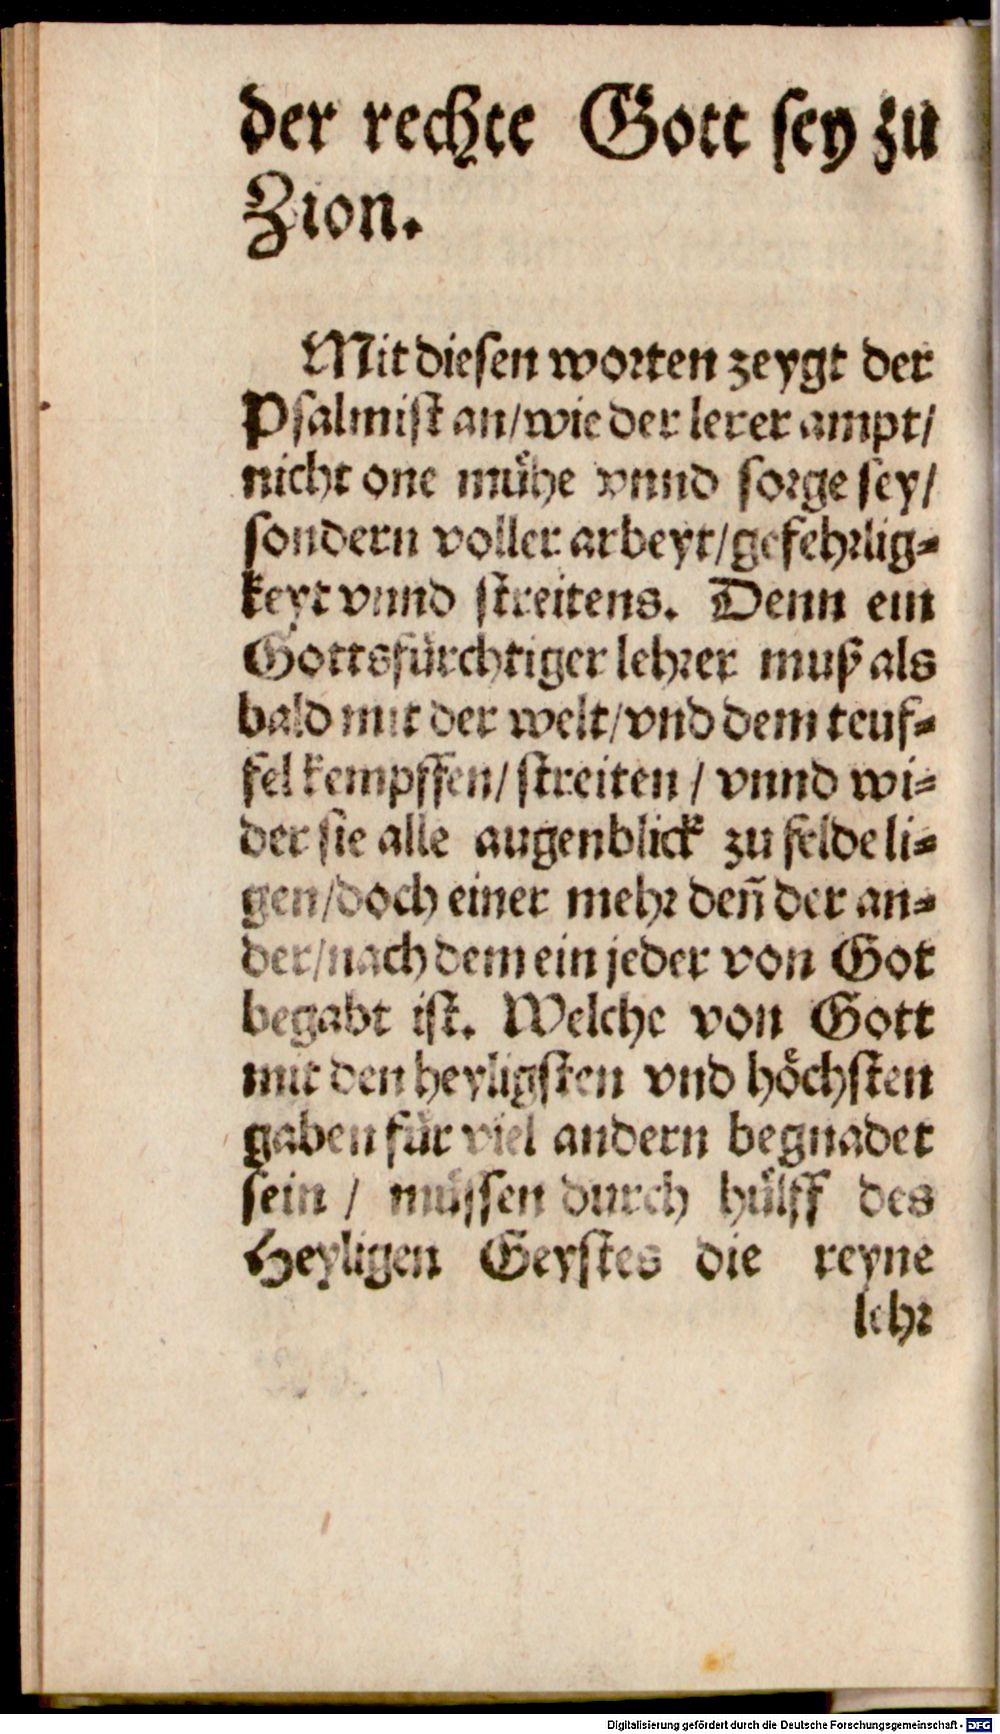 der rechte Gott sey zu
Zion.
Mit diesen worten zeygt der
Psalmist an/wie der lerer ampt/
nicht one mühe vnnd sorge sey/
sondern voller arbeyt/gefehrlig-
keyt vnnd streitens. Denn ein
Gottsfürchtiger lehrer muß als
bald mit der welt/vnd dem teuf-
fel kempffen/streiten/vnnd wi-
der sie alle augenblick zu felde li-
gen/doch einer mehr deñ der an-
der/nach dem ein jeder von Got
begabt ist. Welche von Gott
mit den heyligsten vnd höchsten
gaben für viel andern begnadet
sein/ müssen durch hülff des
Heyligen Geystes die reyne
lehr
Digitalisierung gefördert durch die Deutsche Forschungsgemeinschaft - DFG